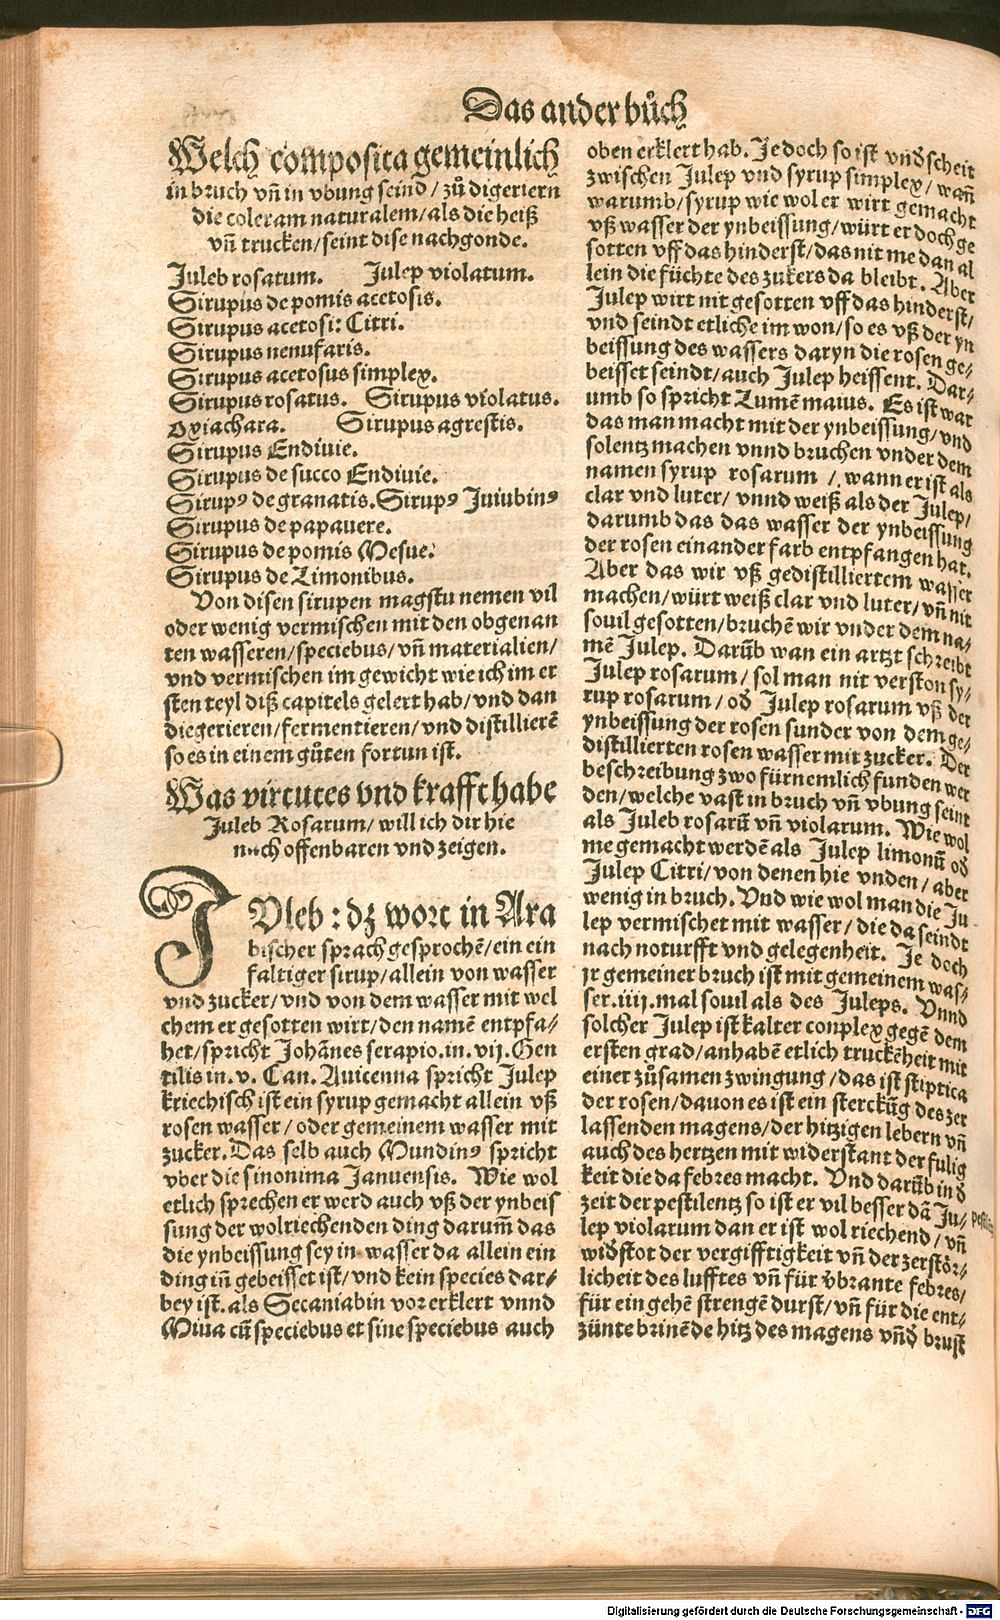 Das ander bůch
Welch composita gemeinlich
in bruch vñ in vbung seind / zů digeriern
die coleram naturalem / als die heiß
vñ trucken / seint dise nachgonde.
Juleb rosatum. Julep violatum.
Sirupus de pomis acetosis.
Sirupus acetosi: Citri.
Sirupus nenufaris.
Sirupus acetosus simplex.
Sirupus rosatus. Sirupus violatus.
Oxiachara. Sirupus agrestis.
Sirupus Endiuie.
Sirupus de succo Endiuie.
Sirupꝰ de granatis. Sirupꝰ Juiubinꝰ
Sirupus de papauere.
Sirupus de pomis Mesue.
Sirupus de Limonibus.
Von disen sirupen magstu nemen vil
oder wenig vermischen mit den obgenan
ten wasseren / speciebus / vñ materialien /
vnd vermischen im gewicht wie ich im er
sten teyl diß capitels gelert hab / vnd dan
diegerieren / fermentieren / vnd distillierē
so es in einem gůten fortun ist.
Was virtutes vnd krafft habe
Juleb Rosarum / will ich dir hie
nach offenbaren vnd zeigen.
JVleb : dz wort in Ara
bischer sprach gesprochē / ein ein
faltiger sirup / allein von wasser
vnd zucker / vnd von dem wasser mit wel
chem er gesotten wirt / den namē entpfa⸗
het / spricht Johānes serapio. in. vij. Gen
tilis in. v. Can. Auicenna spricht Julep
kriechisch ist ein syrup gemacht allein vß
rosen wasser / oder gemeinem wasser mit
zucker. Das selb auch Mundinꝰ spricht
vber die sinonima Januensis. Wie wol
etlich sprechen er werd auch vß der ynbeis
sung der wolriechenden ding darum̄ das
die ynbeissung sey in wasser da allein ein
ding iñ gebeisset ist / vnd kein species dar⸗
bey ist. als Secaniabin vor erklert vnnd
Miua cū speciebus et sine speciebus auch
oben erklert hab. Je doch so ist vnd̉scheit
zwischen Julep vnd syrup simplex / wañ
warumb / syrup wie wol er wirt gemacht
vß wasser der ynbeissung / würt er doch ge
sotten vff das hinderst / das nit me dan al
lein die füchte des zukers da bleibt. Aber
Julep wirt nit gesotten vff das hinderst /
vnd seindt etliche im won / so es vß der yn
beissung des wassers daryn die rosen ge⸗
beisset seindt / auch Julep heissent. Dar⸗
umb so spricht Lumē maius. Es ist war
das man macht mit der ynbeissung / vnd
solentz machen vnnd bruchen vnder dem
namen syrup rosarum / wann er ist als
clar vnd luter / vnnd weiß als der Julep /
darumb das das wasser der ynbeissung
der rosen ein ander farb entpfangen hat.
Aber das wir vß gedistilliertem wasser
machen / würt weiß clar vnd luter / vñ nit
souil gesotten / bruchē wir vnder dem na⸗
mē Julep. Darūb wan ein artzt schreibt
Julep rosarum / sol man nit verston sy⸗
rup rosarum / od̉ Julep rosarum vß der
ynbeissung der rosen sunder von dem ge⸗
distillierten rosen wasser mit zucker. Der
beschreibung zwo fürnemlich funden wer
den / welche vast in bruch vñ vbung seint
als Juleb rosarū vñ violarum. Wie wol
me gemacht werdē als Julep limonū od̉
Julep Citri / von denen hie vnden / aber
wenig in bruch. Vnd wie wol man die Ju
lep vermischet mit wasser / die da seindt
nach noturfft vnd gelegenheit. Je doch
jr gemeiner bruch ist mit gemeinem was⸗
ser. iiij. mal souil als des Juleps. Vnnd
solcher Julep ist kalter conplex gegē dem
ersten grad / anhabē etlich truckēheit mit
einer zůsamen zwingung / das ist stiptica
der rosen / dauon es ist ein sterckūg des zer
lassenden magens / der hitzigen lebern vñ
auch des hertzen mit widerstant der fulig
keit die da febres macht. Vnd darūb in d̉
zeit der pestilentz so ist er vil besser dā Ju⸗
lep violarum dan er ist wol riechend / vñ
wid̉stot der vergifftigkeit vñ der zerstör⸗
licheit des lufftes vñ für v̉brante febres /
für ein gehē strengē durst / vñ für die ent⸗
zünte brinēde hitz des magens vñd̉ brust
Digitalisierung gefördert durch die Deutsche Forschungsgemeinschaft - DFG